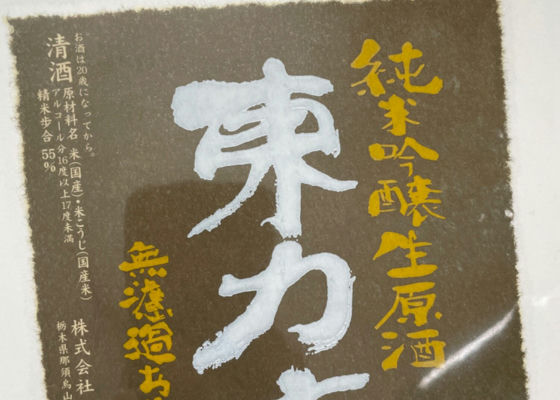 純米吟醸生原酒
東力
無濾過
お酒は20歳になってから。
清酒
原材料名 米(国産)・米こうじ(国産米)
アルコール分16度以上17度未満
精米歩合 55%
株式会社
栃木県那須烏山